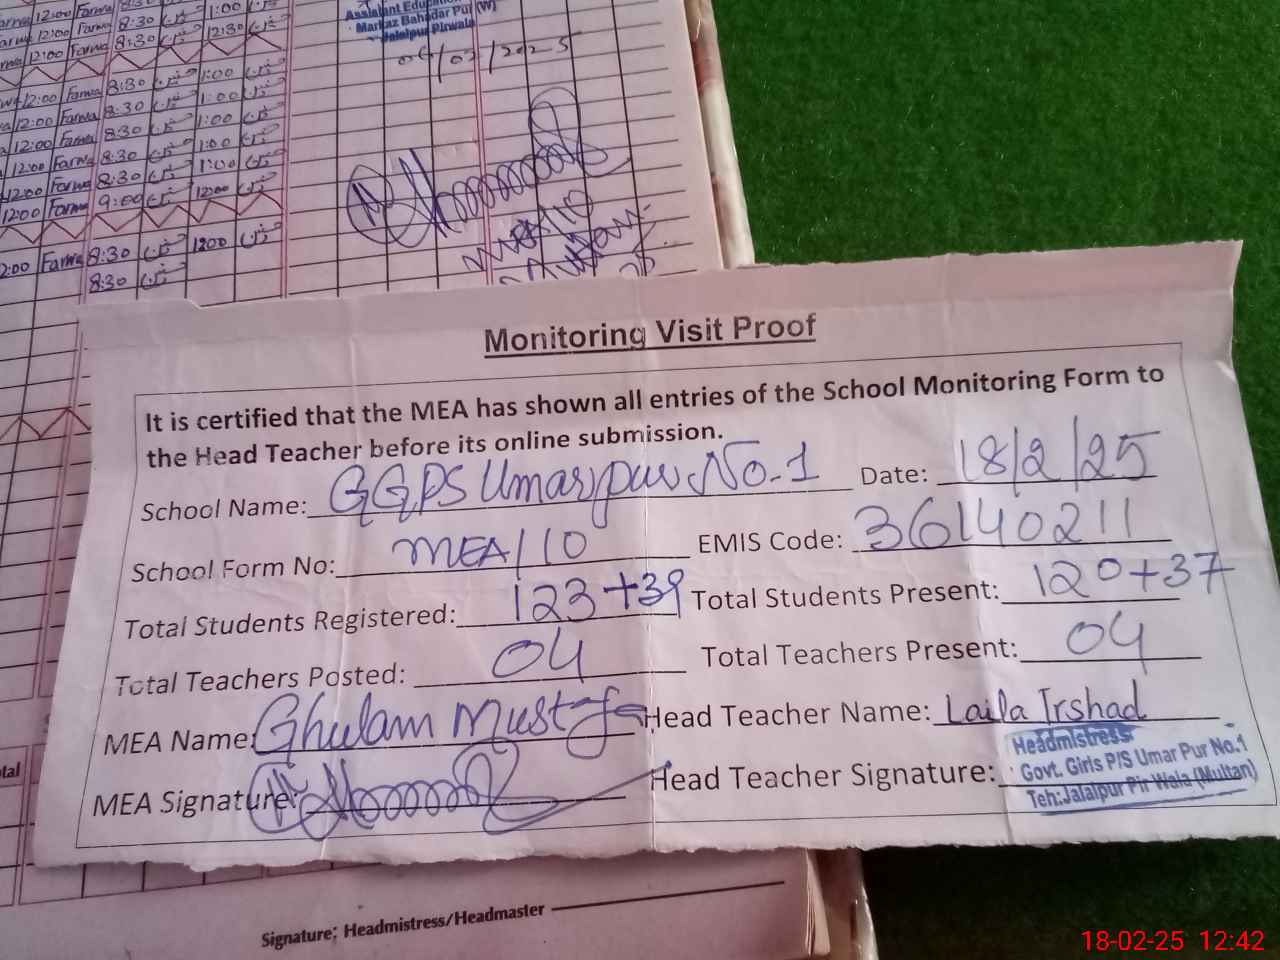 12:00 Farwa 8:30 1:00
12:00 Farwa 8:30 12:30
12:00 Farwa 8:30 1:00
12:00 Farwa 8:30 1:00
12:00 Farwa 8:30 1:00
12:00 Farwa 8:30 1:00
12:00 Farwa 8:30 1:00
12:00 Farwa 9:00 12:00
2:00 Farwa 8:30 12:00
8:30
Markaz Bahadar Pur (W)
Jalalpur Pirwala
MEA/10
Monitoring Visit Proof
It is certified that the MEA has shown all entries of the School Monitoring Form to
the Head Teacher before its online submission.
School Name: GGPS Umarpur No.1 Date: 18/2/25
School Form No: MEA/10 EMIS Code: 36140211
Total Students Registered: 123+39 Total Students Present: 120+37
Total Teachers Posted: 04 Total Teachers Present: 04
MEA Name: Ghulam Mustafa Head Teacher Name: Laila Irshad
MEA Signature: Head Teacher Signature:
Headmistress
Govt. Girls P/S Umar Pur No.1
Teh:Jalalpur Pir Wala (Multan)
Signature: Headmistress/Headmaster
18-02-25 12:42